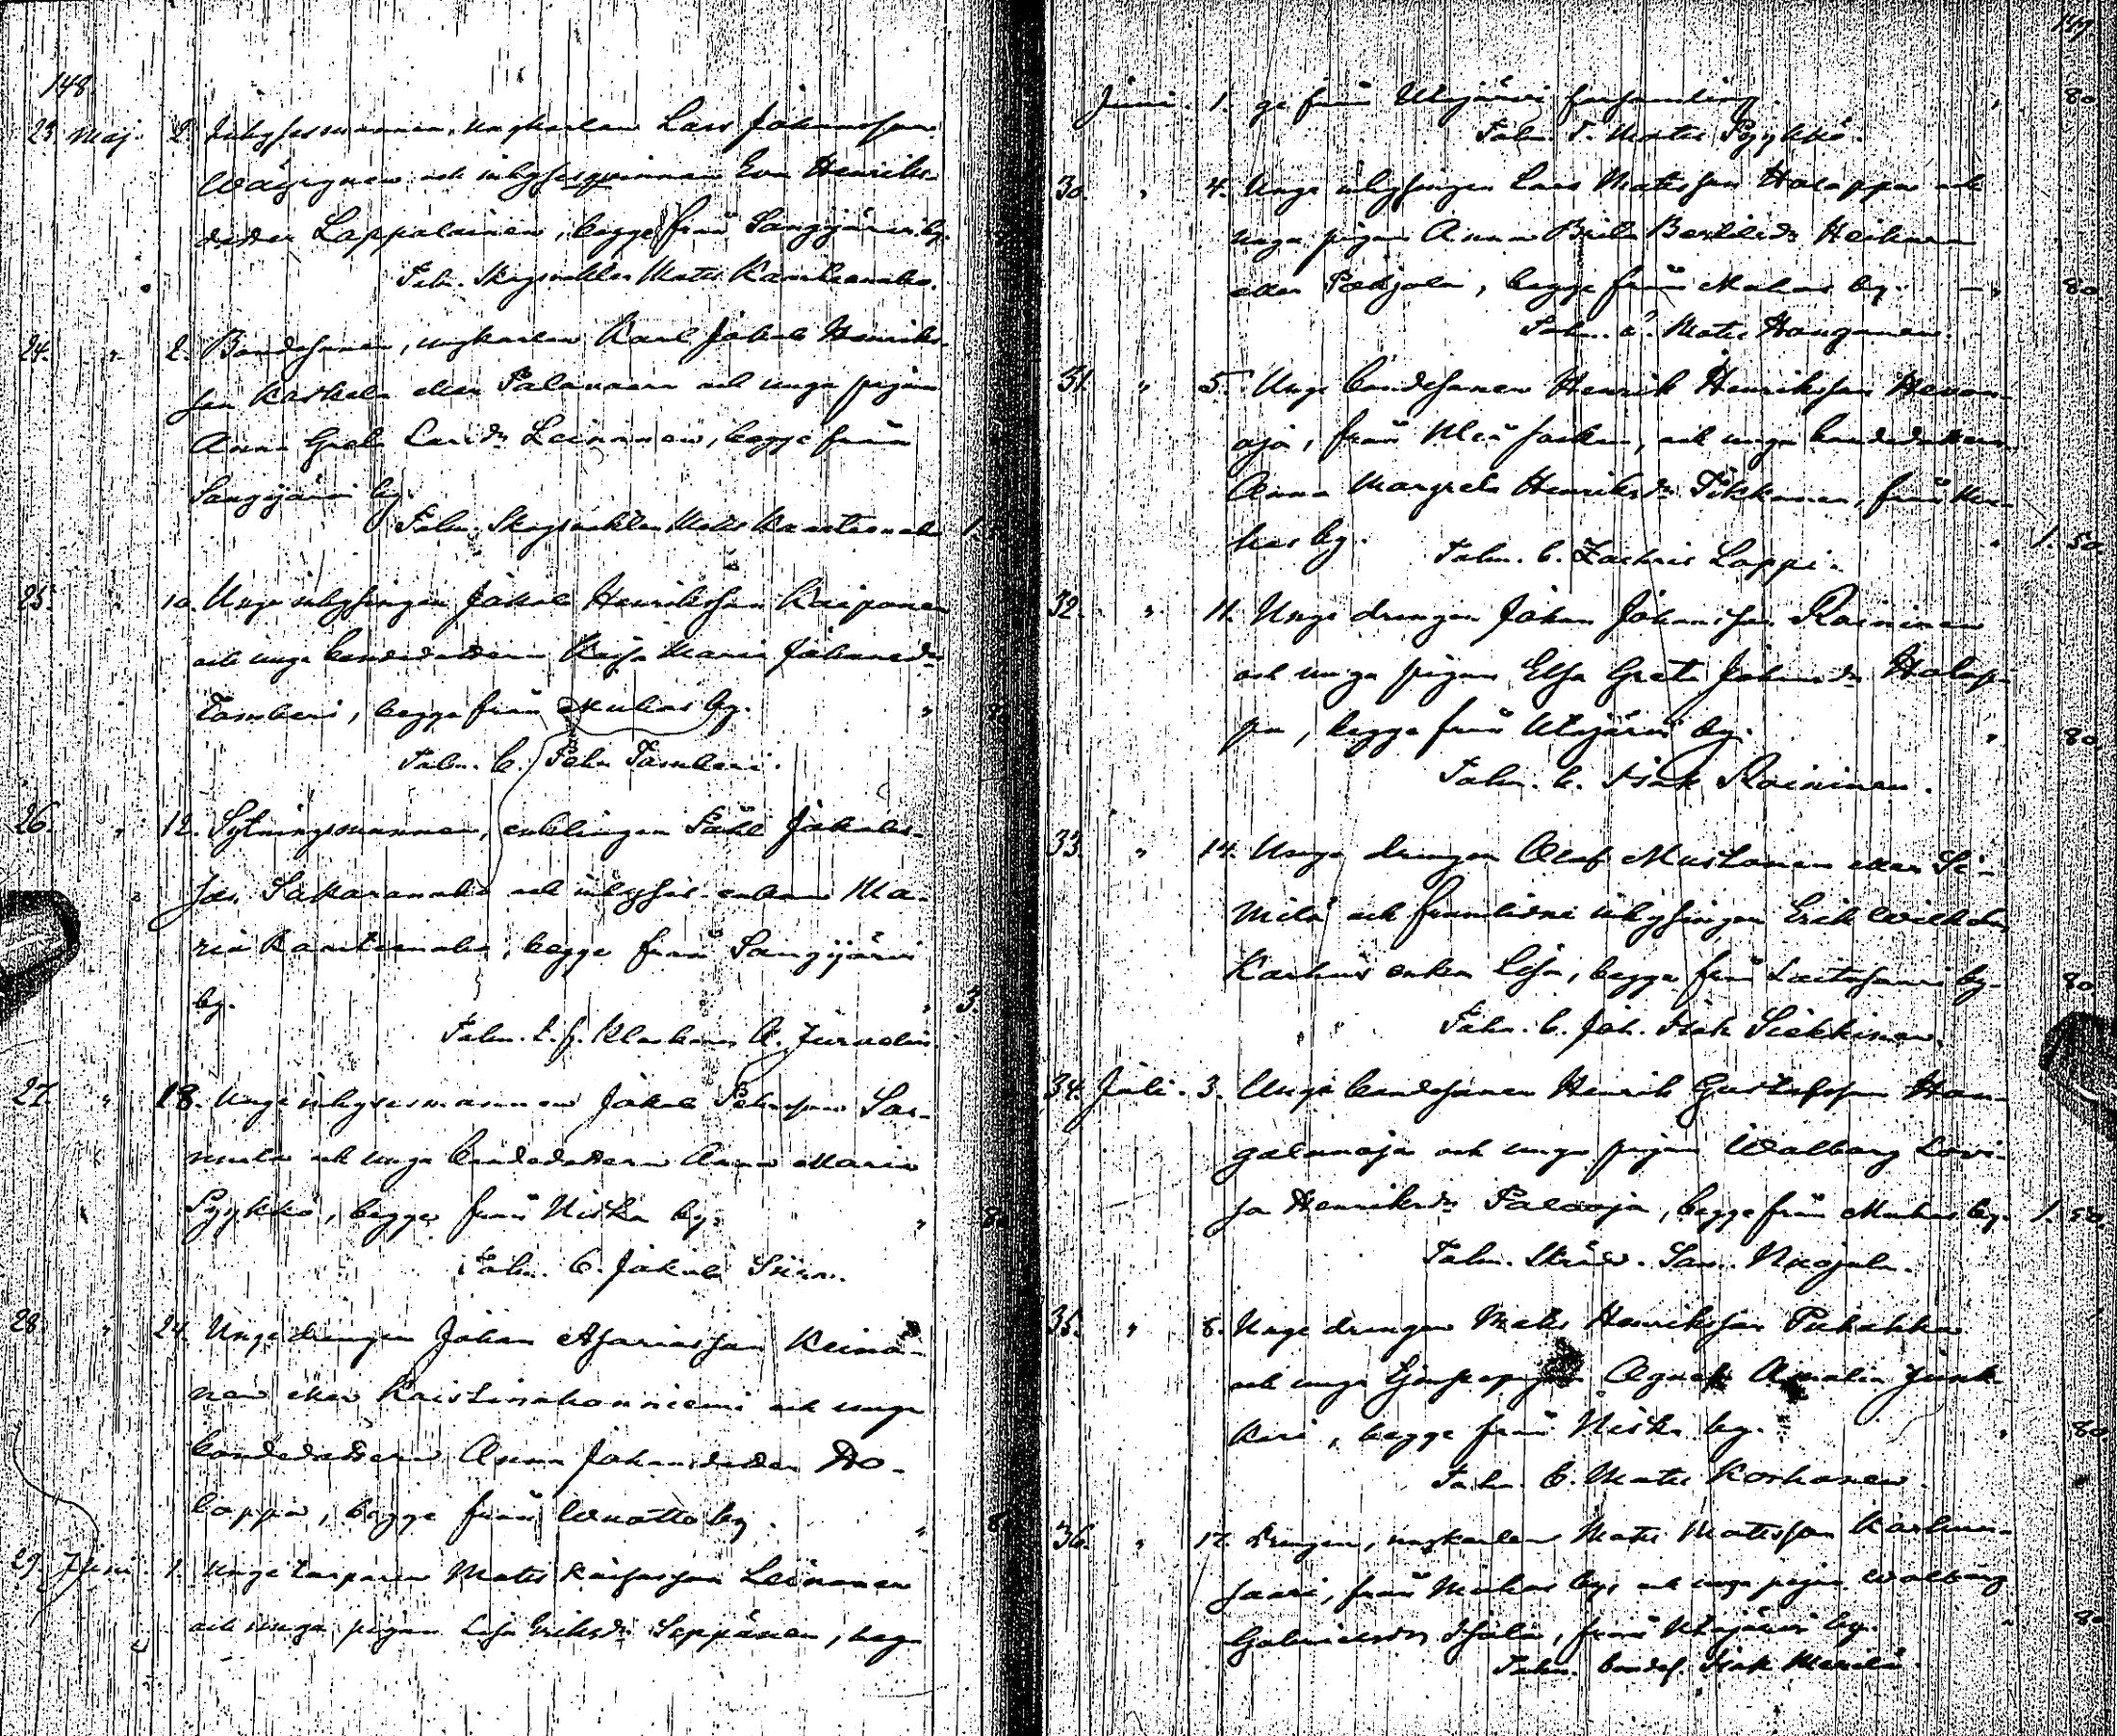 148
23. Maj. 2. Inhysesmannen, ungkarlen Lars Johansson
Väyrynen och inhysesqvinnan Eva Henriks-
dotter Lappalainen, begge från Sangijärvi by.
Talm. Skogvaktar Mats Karttunen
24. " 2. Bondesonen, ungkarlen Karl Jakob Henriks-
son Karhela eller Palanaara och unga pigan
Anna Greta Larsdr Leinonen, begge från
Sangijärvi by.
Talm. Skogvaktar Mats 1.
25. " 10. Unge inhysingen Jakob Henriksson Kaiponen
och unga bondedottern Kaisa Maria Johansdr
Tamberi, begge från Muhos by. "
Talm. b. Pehr Tamberi.
26. " 12. Sytningsmannen, enklingen Påhl Jakobs-
son Sakaranaho och inhyses-enkan Ma-
ria, begge från Sangijärvi
by. " 3
Talm. t. f. Klockaren A. Jurvelin.
27. " 18. Unge inhysesmannen Jakob Pehrsson Sar-
och unga bondedottern Anna Maria
Pyykkö, begge från Niska by. " 80
Talm. b. Jakob
28. " 24. Unge drengen Johan Asariasson Keinä-
nen eller Kaistinahonniemi och unga
bondedottern Anna Johansdotter Ho-
lappa, begge från Vuotto by. "
29. Juni. 1. Unge torparen Mats Kaifasson Leinonen
och unga pigan Lisa Eriksdr Seppänen, beg-
149
Juni. 1. ge från Utajärvi församling. " 80
Talm. T. Mats Pyykkö.
30. " 4. Unge inhysingen Lars Matsson Holappa och
unga pigan Anna Brita Bertilsdr Heikura
eller Pohjola, begge från Muhos by. " 80
Talm. Mats Hanganen.
31. " 5. Unge bondesonen Henrik Henriksson Hevon-
oja, från Uleå socken, och unga bondedottern
Anna Margreta Henriksdr Tikkanen, från Mu-
hos by. " 1. 50
Talm. b. Zachris Lappi.
32. " 11. Unge drengen Johan Johansson Roininen
och unga pigan Elsa Greta Johansdr Holap-
pa, begge från Utajärvi by. " 80
Talm. b. Isak Roininen.
33. " 14. Unge drengen Olof Mustonen eller Si-
milä och framlidne inhysingen Erik Vilhelm
Karhus enka Lisa, begge från Laitasaari by. 80
Talm. b. Joh. Isak Siekkinen.
34. Juli. 3. Unge bondesonen Henrik Gustafsson Han-
galanoja och unga pigan Walborg Lovi-
sa Henriksdr Palooja, begge från Muhos by. 1. 50
Talm.
35. " 8. Unge drengen Mats Henriksson Puhakka
och unga tjenstepigan Agnes Amalia Junk-
kari, begge från Niska by. " 80
Talm. b. Mats Korhonen.
36. " 12. Drengen, ungkarlen Mats Matsson Karhun-
saari, från Muhos by, och unga pigan Walborg
Gabrielsdr, från Utajärvi by. " 80
Talm. bondes. Isak Merilä.